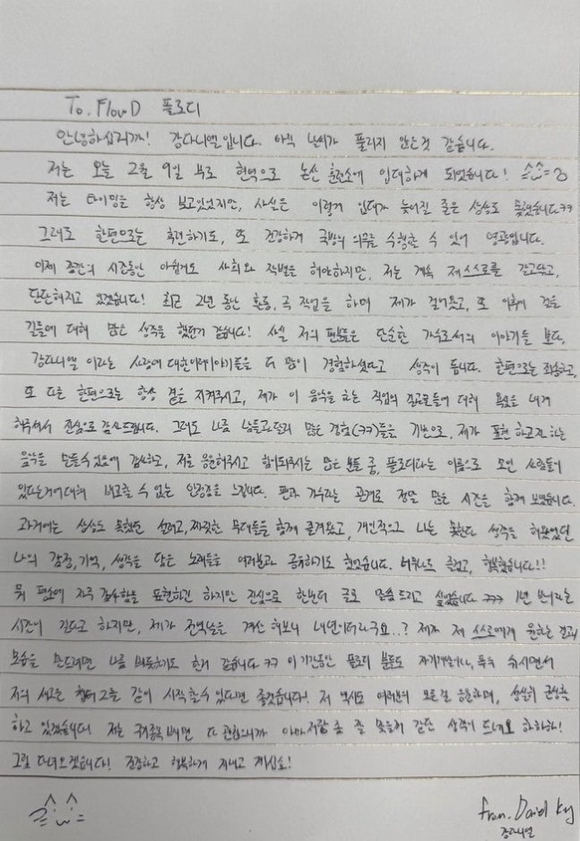 To. FlouD 플로디
안녕하십니까! 강다니엘입니다. 아직 날씨가 풀리지 않는것 같습니다.
저는 오늘 2월 9일 부로 현역으로 논산 훈련소에 입대하게 되었습니다!
저는 타이밍을 항상 보고있었지만, 사실은 이렇게 입대가 늦어질 줄은 상상도 못했습니다ㅋㅋ
그래도 한편으로는 후련하기도, 또 건강하게 국방의 의무를 수행할 수 있어 영광입니다.
이제 잠깐의 시간동안 아쉽게도 사회와 작별을 해야하지만, 저는 계속 저 스스로를 갈고닦고,
단단해지고 있겠습니다! 최근 2년 동안 활동, 곡 작업을 하며 제가 걸어왔고, 또 이후에 걸을
길들에 대해 많은 생각을 했던거 같습니다! 사실 저의 팬분들은 단순한 가수로서의 이야기들 보다,
강다니엘 이라는 사람에 대한 이야기들을 더 많이 경험하셨다고 생각이 듭니다. 한편으로는 죄송하고,
또 다른 한편으로는 항상 곁을 지켜주시고, 제가 이 음악을 하는 직업의 결과물들에 대해 응원을 내게
해주셔서 진심으로 감사드립니다. 그래도 나름 남들과 달리 많은 경험(ㅋㅋ)들을 기반으로, 제가 표현 하고자 하는
음악을 만들 수 있음에 감사하고, 저를 응원해주시고 함께해주시는 많은 분들 중, 플로디라는 이름으로 모인 사람들이
있다는거에 대해 비교할 수 없는 안정감을 느낍니다. 팬과 가수라는 관계로 정말 많은 시간을 함께 보냈습니다.
과거에는 상상도 못했던 설레고, 짜릿한 무대들을 함께 즐겨왔고, 개인적으로 나는 못한다 생각을 해왔었던
나의 감정, 기억, 생각을 담은 노래들을 여러분과 공유하기도 했었습니다. 너무나도 즐겁고, 행복했습니다!!
뭐 평소에 자주 감사함을 표현하긴 하지만 진심으로 한번 더 글로 말씀 드리고 싶었습니다 ㅋㅋㅋ 1년 반이라는
시간이 길다고 하지만, 제가 전역날을 계산 해보니 내년이더라구요..? 제가 저 스스로에게 원하는 결과,
모습을 만드려면 나름 빠듯하기도 한거 같습니다ㅋㅋ 이 기간동안 플로디 분들도 자기개발이나, 푹 쉬시면서
저의 새로운 챕터 2를 같이 시작할 수 있다면 좋겠습니다! 저 역시도 여러분의 모든걸 응원하며, 성실히 군생활
하고 있겠습니다. 저는 귀중품 빼면 다 괜찮으니까 아마 저랑 좀 잘 맞을거 같은 생각이 드네요 하하하!
그럼 다녀오겠습니다! 건강하고 행복하게 지내고 계십쇼!
from. Daniel K
강다니엘